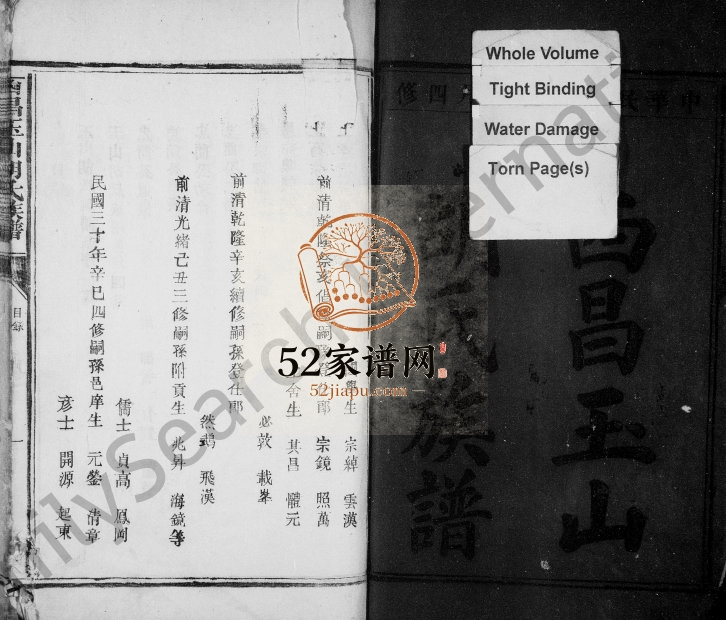 Whole Volume
Tight Binding
Water Damage
Torn Page(s)
四修
西昌玉山
胡氏族譜
生 宗綽 雲漢
前清乾隆癸亥 嗣
宗鏡 照萬
舍生 其昌 懼元
前清乾隆辛亥續修嗣孫登仕郎
必敦 載峯
然鵠 飛漢
前清光緒己丑三修嗣孫附貢生 兆昇 海鏡等
民國三十年辛巳四修嗣孫邑庠生 元鎣 清章
儒士 貞高 鳳岡
彥士 開源 起東
西昌玉山胡氏族譜
目錄
一
52家谱网
52jiapu.com
FamilySearch International